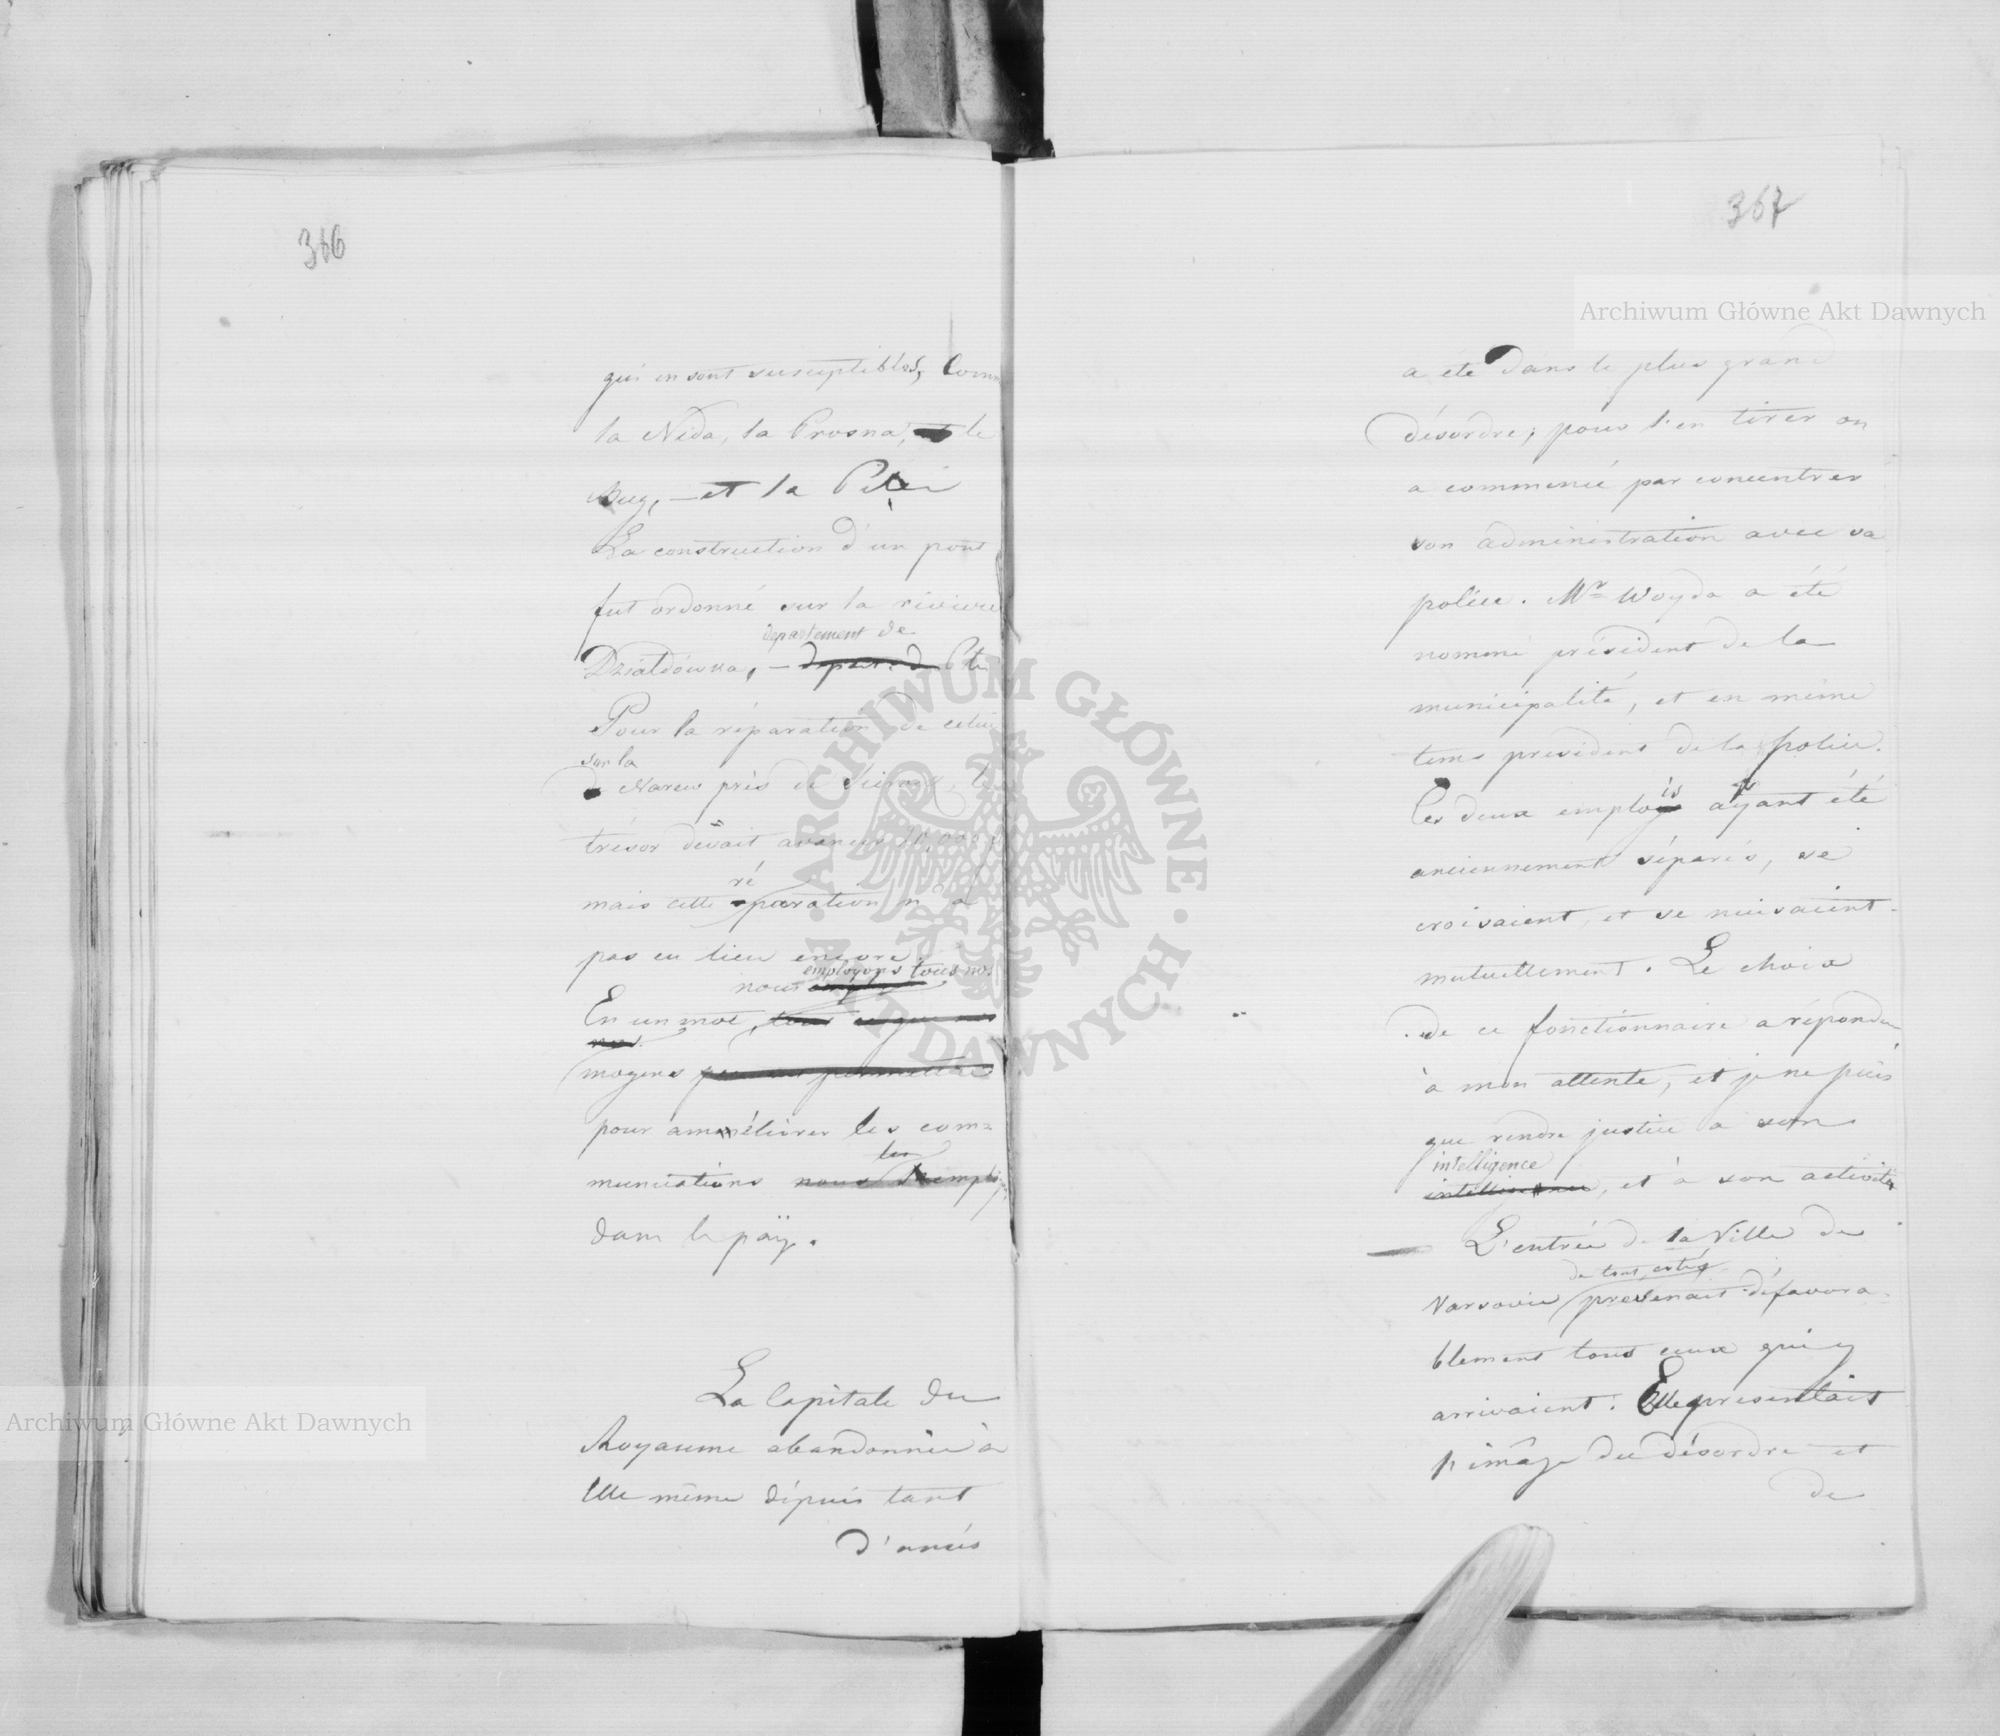 366
qui en sont susceptibles, Comm
la Nida, la Prosna, le
Bug, — et la
La construction d'un pont
fut ordonné sur la riviere
département de
Dzialdówka, —
Pour la réparation de celui
sur la
Narew près de
trésor devait avancer
ré
mais cette paration n'a
pas eu lieu encore.
employons tous nos
nous
En un mot,
moyens
pour améliorer les com=
les
munications nous
dans le païy.
La Capitale du
Royaume abandonnée à
Elle même dépuis tant
d'annés
367
a été dans le plus grand
désordre; pour l'en tirer on
a commencé par concentrer
son administration avec sa
police. Mr Woyda a été
nommé président de la
municipalité, et en même
tems president de la police.
Ces deux emplois ayant été
anciennement séparés, se
croisaient, et se nuisaient
mutuellement. Le choix
de ce fonctionnaire a répondu
à mon attente, et je ne puis
que rendre justice à son
intelligence
intelligence, et à son activité
— L'entrée de la Ville de
de tous cotés
Varsovie prevenait défavora
blement tous ceux qui y
arrivaient. Elle presentait
l'imâge du désordre et
de
Archiwum Główne Akt Dawnych
Archiwum Główne Akt Dawnych
ARCHIWUM GŁÓWNE AKT DAWNYCH